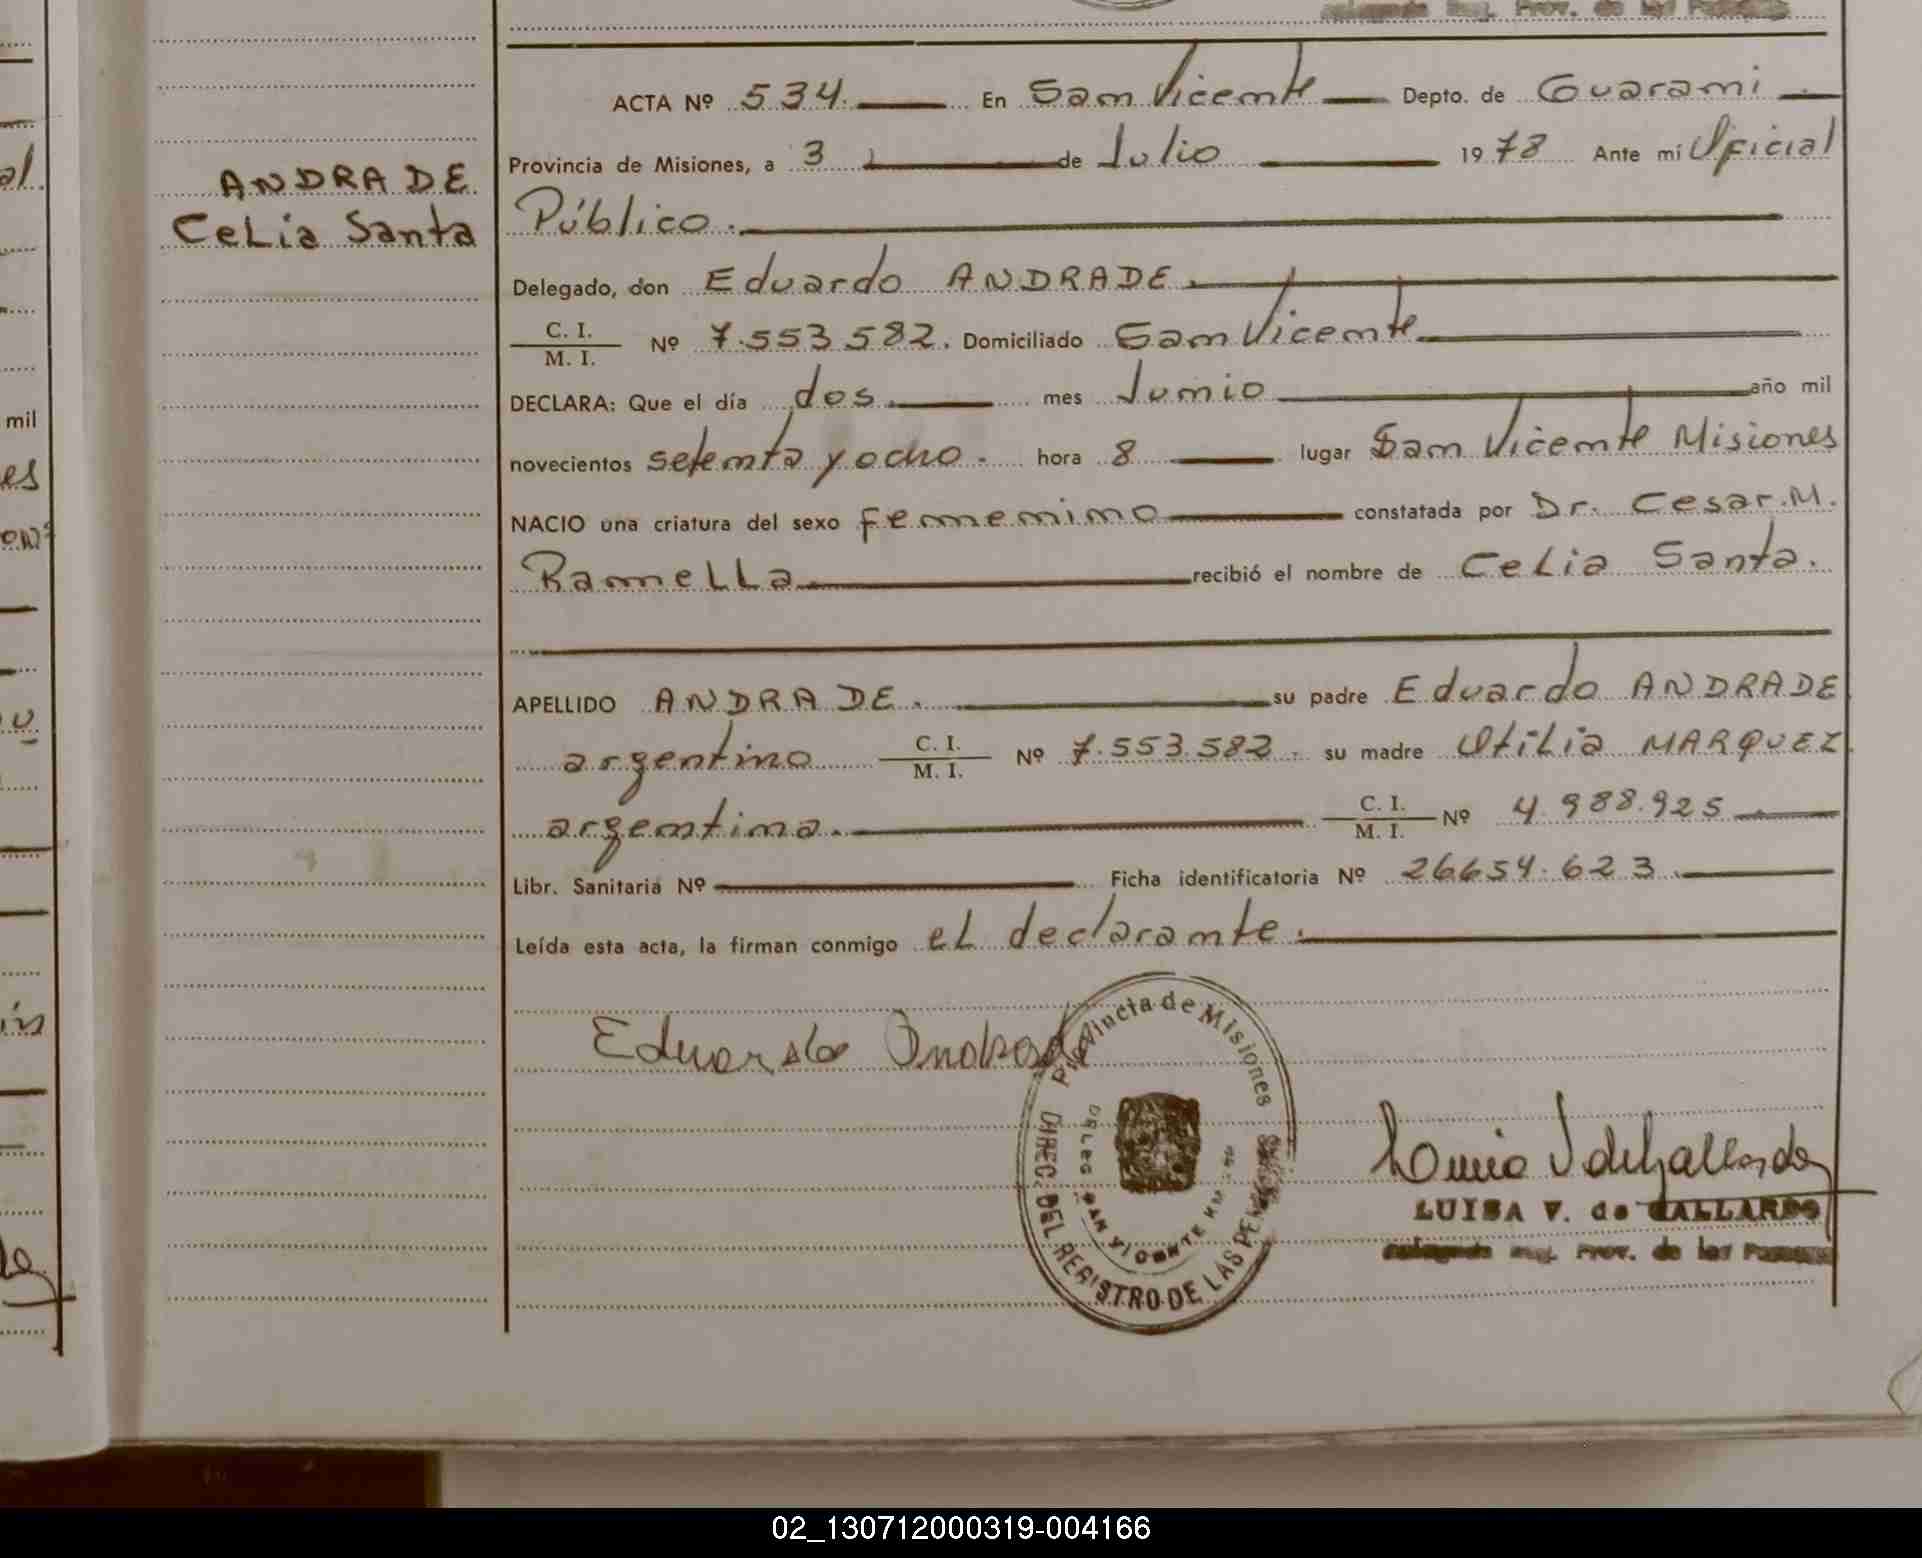 ACTA Nº 534. En San Vicente Depto. de Guarami
Provincia de Misiones, a 3 de Julio 1978 Ante mí Oficial
Público.
ANDRADE
Celia Santa
Delegado, don Eduardo ANDRADE.
C. I.
M. I.
Nº 7.553.582. Domiciliado San Vicente
DECLARA: Que el día dos. mes Junio año mil
novecientos setenta y ocho. hora 8 lugar San Vicente Misiones
NACIO una criatura del sexo femenino constatada por Dr. Cesar. M.
Ramella recibió el nombre de Celia Santa.
APELLIDO ANDRADE. su padre Eduardo ANDRADE
argentino C. I.
M. I. Nº 7.553.582. su madre Otilia MARQUEZ.
argentina. C. I.
M. I. Nº 4.988.925
Libr. Sanitaria Nº Ficha identificatoria Nº 26654.623.
Leída esta acta, la firman conmigo el declarante.
Eduardo Andrade
Provincia de Misiones
DIREC. DEL REGISTRO DE LAS PERSONAS
DELEG. SAN VICENTE KM
LUISA V. de GALLARDO
Reg. Prov. de las Personas
mil
02_130712000319-004166